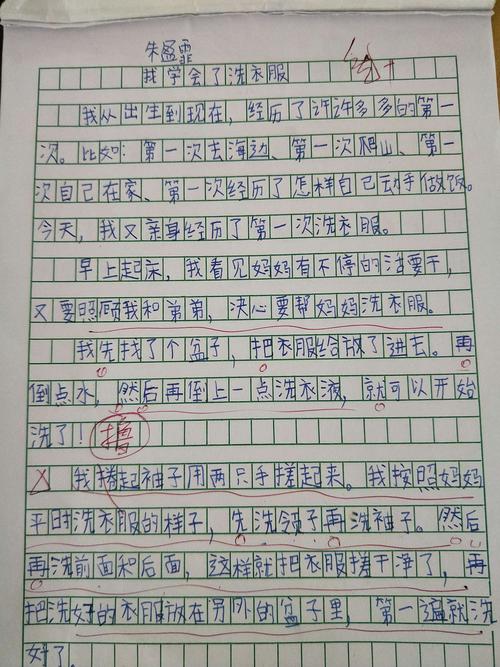 朱盈霏
优+
我学会了洗衣服
我从出生到现在，经历了许许多多的第一
次。比如：第一次去海边、第一次爬山、第一
次自己在家、第一次经历了怎样自己动手做饭。
今天，我又亲身经历了第一次洗衣服。
早上起床，我看见妈妈有不停的活要干，
又要照顾我和弟弟，决心要帮妈妈洗衣服。
我先找了个盆子，把衣服给放了进去。再
倒点水，然后再倒上一点洗衣液，就可以开始
洗了！撸
我搓起袖子用两只手搓起来。我按照妈妈
平时洗衣服的样子，先洗领子再洗袖子。然后
再洗前面和后面，这样就把衣服搓干净了，再
把洗好的衣服放在另外的盆子里，第一遍就洗
好了。